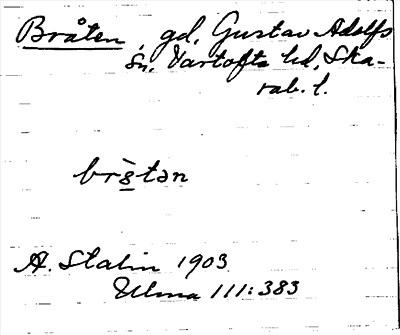 Bråten, gd, Gustav Adolfs
sn, Vartofta hd, Ska-
rab. l.
br&#768;stən
A. Stalin 1903
Ulma 111:383